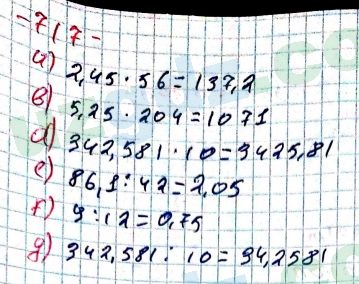 -717-
a) 2,45 · 56 = 137,2
b) 5,25 · 204 = 1071
d) 342,581 · 10 = 3425,81
e) 86,1 : 42 = 2,05
f) 9 : 12 = 0,75
g) 342,581 : 10 = 34,2581